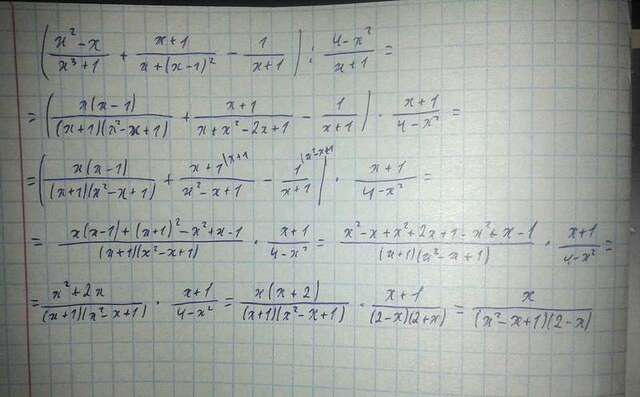 (x²-x / x³+1 + x+1 / x+(x-1)² - 1 / x+1) : 4-x² / x+1 =
= (x(x-1) / (x+1)(x²-x+1) + x+1 / x+x²-2x+1 - 1 / x+1) · x+1 / 4-x² =
= (x(x-1) / (x+1)(x²-x+1) + x+1 |x+1 / x²-x+1 - 1 |x²-x+1 / x+1) · x+1 / 4-x² =
= x(x-1)+(x+1)²-x²+x-1 / (x+1)(x²-x+1) · x+1 / 4-x² = x²-x+x²+2x+1-x²+x-1 / (x+1)(x²-x+1) · x+1 / 4-x² =
= x²+2x / (x+1)(x²-x+1) · x+1 / 4-x² = x(x+2) / (x+1)(x²-x+1) · x+1 / (2-x)(2+x) = x / (x²-x+1)(2-x)